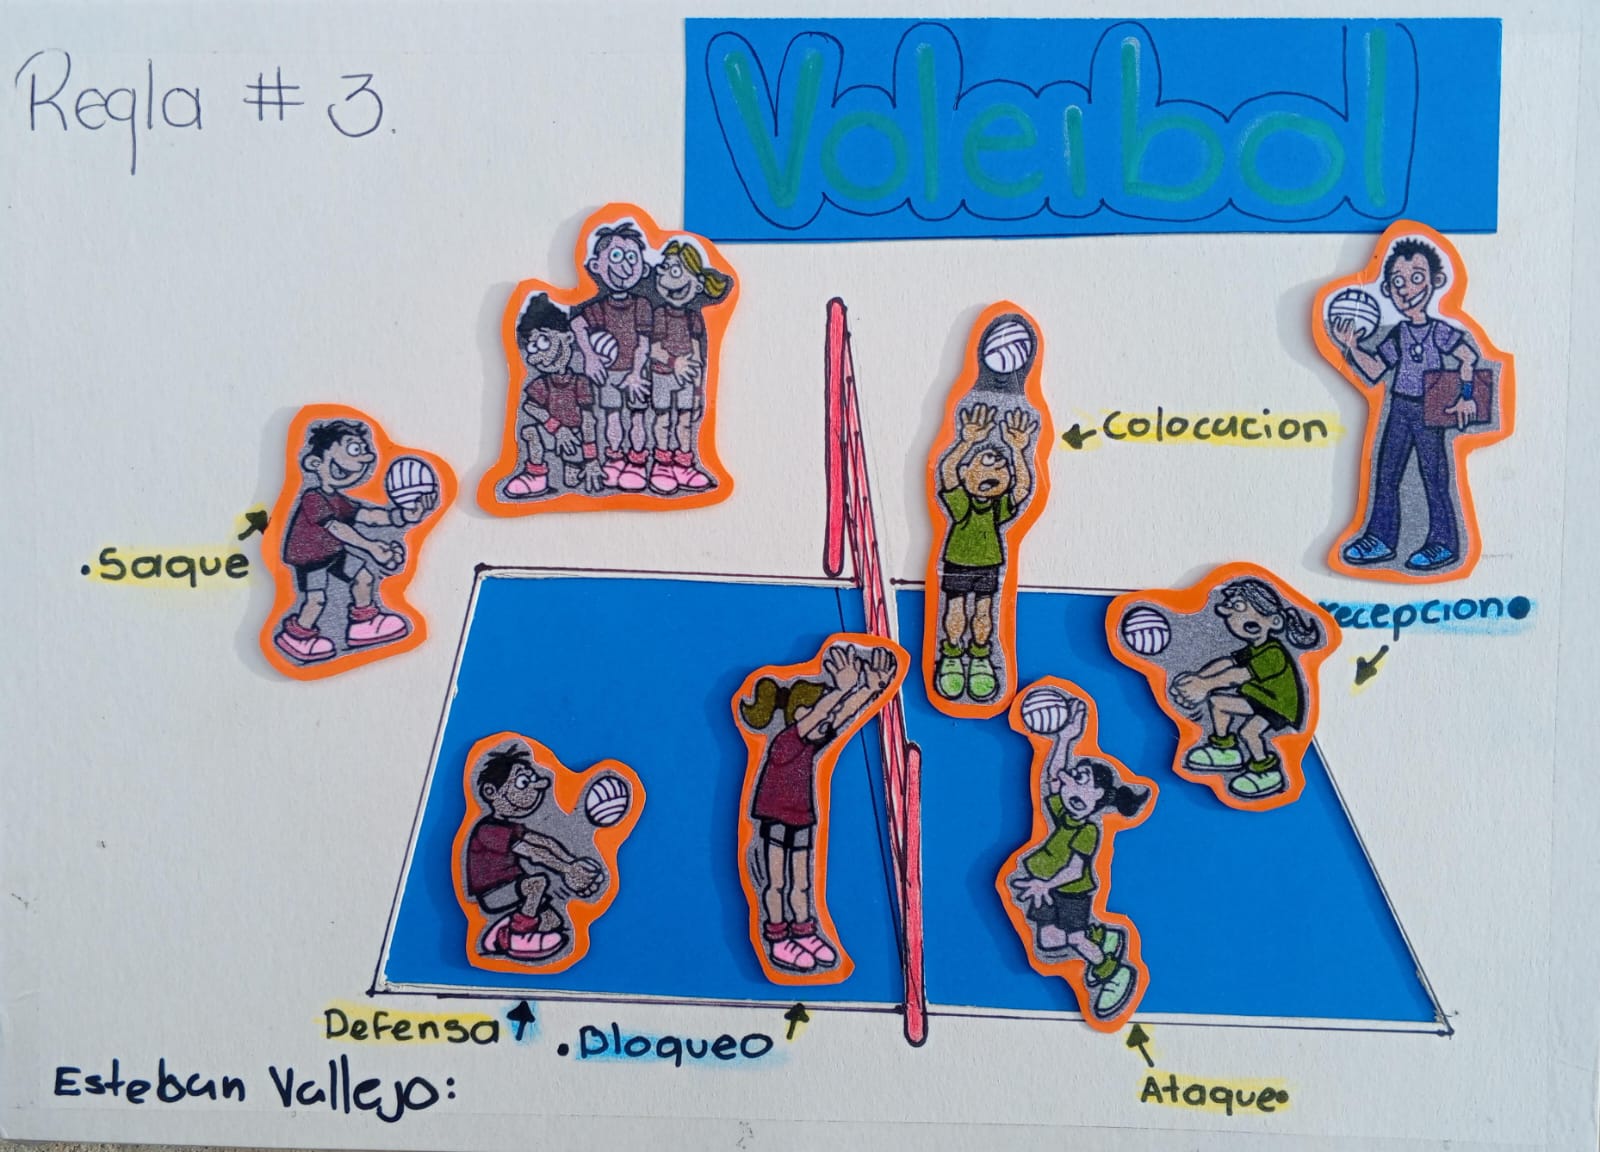 Regla # 3.
Voleibol
Colocacion
.Saque
recepcion
Defensa
.Bloqueo
Ataque
Esteban Vallejo: